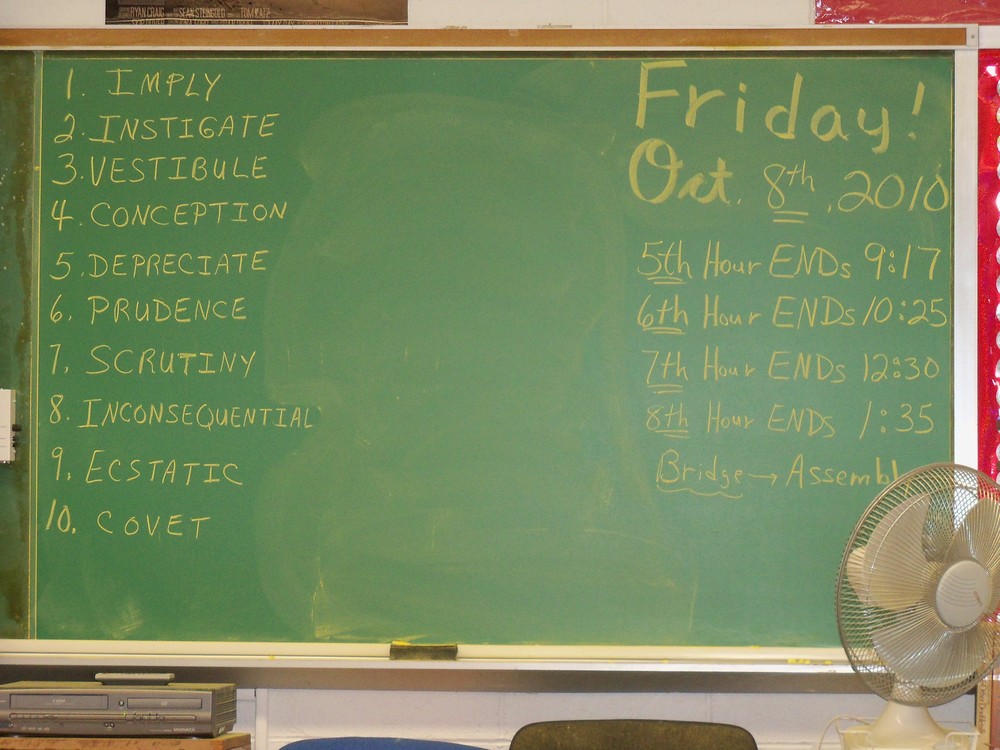 RYAN CRAIG SEAN STEINGOLD TOM KATZ
1. IMPLY
2. INSTIGATE
3. VESTIBULE
4. CONCEPTION
5. DEPRECIATE
6. PRUDENCE
7. SCRUTINY
8. INCONSEQUENTIAL
9. ECSTATIC
10. COVET
Friday!
Oct. 8th, 2010
5th Hour ENDs 9:17
6th Hour ENDs 10:25
7th Hour ENDs 12:30
8th Hour ENDs 1:35
Bridge → Assembl